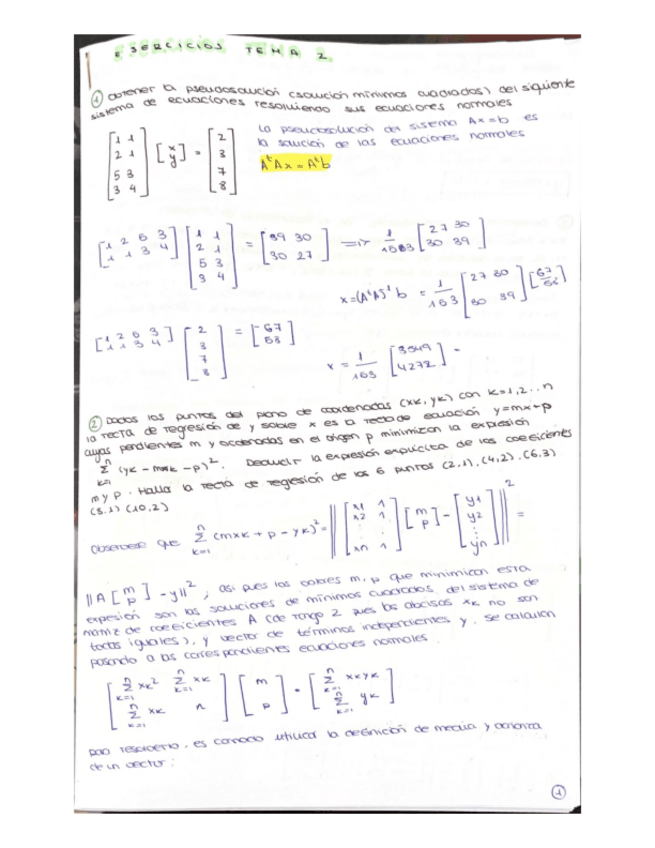 EJERCICIOS TEMA 2.
① Obtener la pseudosolución (solución mínimos cuadrados) del siguiente
sistema de ecuaciones resolviendo sus ecuaciones normales
[1 1; 2 1; 5 3; 3 4] [x; y] = [2; 3; 7; 8]
La pseudosolución del sistema Ax=b es
la solución de las ecuaciones normales
AᵗAx = Aᵗb
[1 2 5 3; 1 1 3 4] [1 1; 2 1; 5 3; 3 4] = [39 30; 30 27] => 1/153 [27 30; 30 39]
x=(AᵗA)⁻¹b = 1/153 [27 30; 30 39] [67; 56]
[1 2 5 3; 1 1 3 4] [2; 3; 7; 8] = [67; 58]
x = 1/153 [3549; 4272] =
② Dados los puntos del plano de coordenadas (xk, yk) con k=1,2...n
la recta de regresión de y sobre x es la recta de ecuación y=mx+p
cuyas pendientes m y ordenadas en el origen p minimizan la expresión
n Σ k=1 (yk - mxk - p)². Deducir la expresión explícita de los coeficientes
m y p. Halla la recta de regresión de los 6 puntos (2,1), (4,2), (6,3)
(8,1) (10,2)
Observese que n Σ k=1 (mxk + p - yk)² = ‖[x1 1; x2 1; ⋮ ⋮; xn 1] [m; p] - [y1; y2; ⋮; yn]‖² =
‖A [m; p] - y‖², así pues los valores m, p que minimizan esta
expresión son las soluciones de mínimos cuadrados del sistema de
matriz de coeficientes A (de rango 2 pues las abcisas xk no son
todas iguales), y vector de términos independientes y. Se calculan
pasando a las correspondientes ecuaciones normales.
[n Σ k=1 xk² n Σ k=1 xk; n Σ k=1 xk n] [m; p] = [n Σ k=1 xkyk; n Σ k=1 yk]
para resolverlo, es cómodo utilizar la definición de media y
de un vector:
1